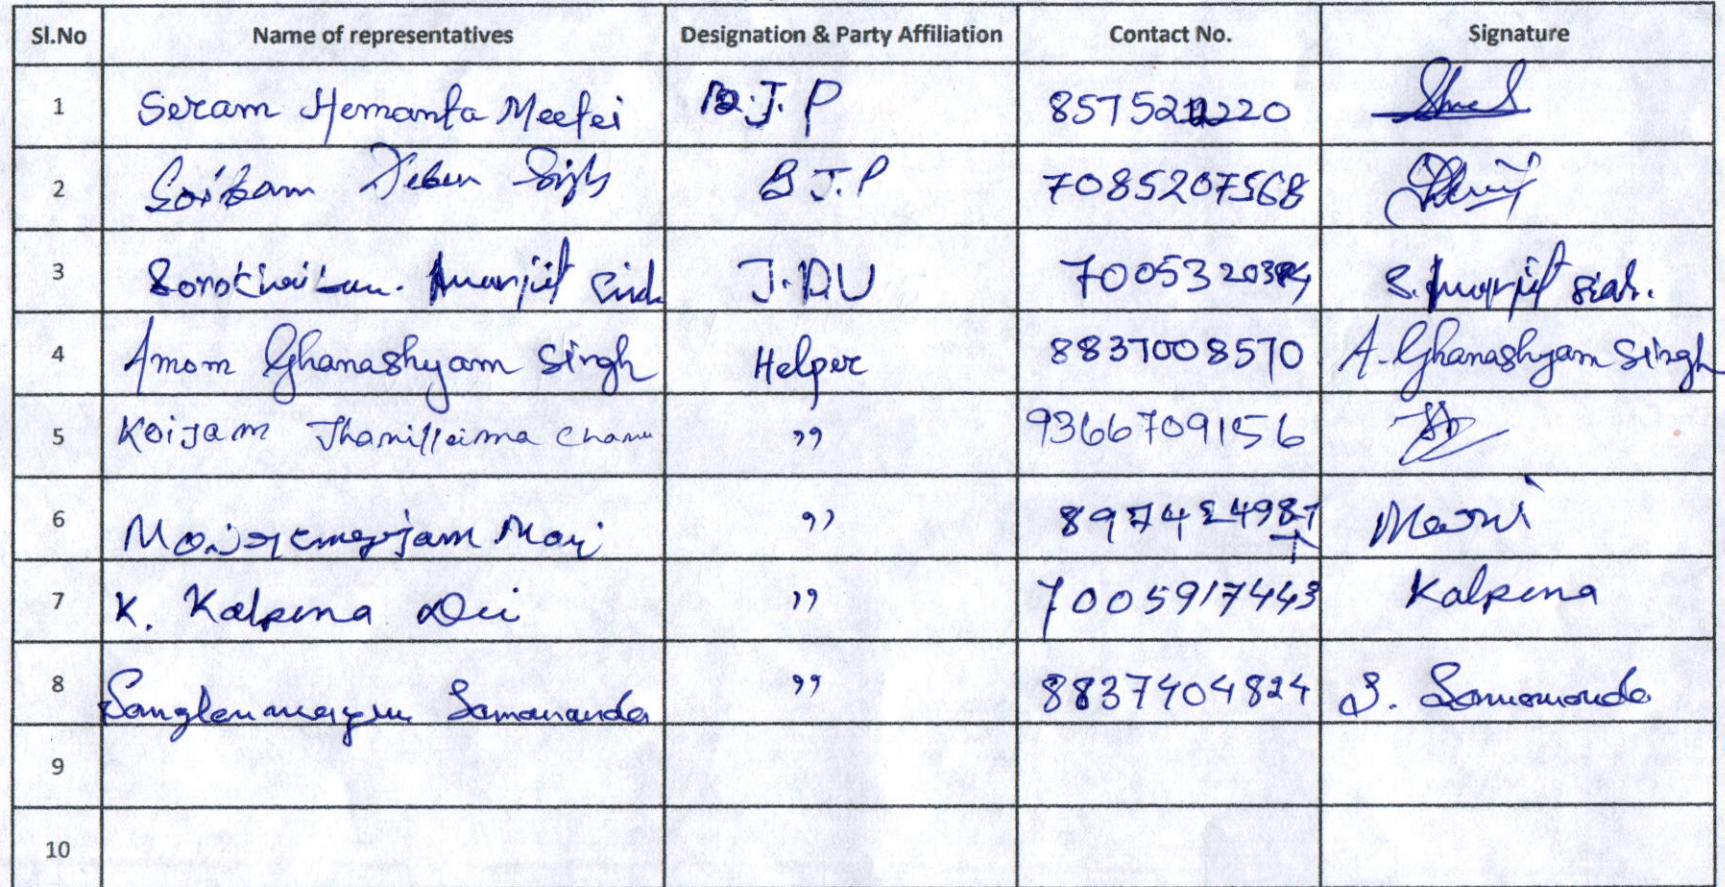 Sl.No Name of representatives Designation & Party Affiliation Contact No. Signature
1 Seram Hemanta Meetei B.J.P 857522220
2 Soibam Deben Singh B.J.P 7085207568
3 Amarjit Singh J.D.U 70053203 S. Amarjit Singh.
4 Amom Ghanashyam Singh Helper 8837008570 A. Ghanashyam Singh
5 Koijam Chanu " 9366709156
6 "
7 K. Kalpena Devi " 7005917443 Kalpena
8 Samananda " 8837404824 S. Samananda
9
10